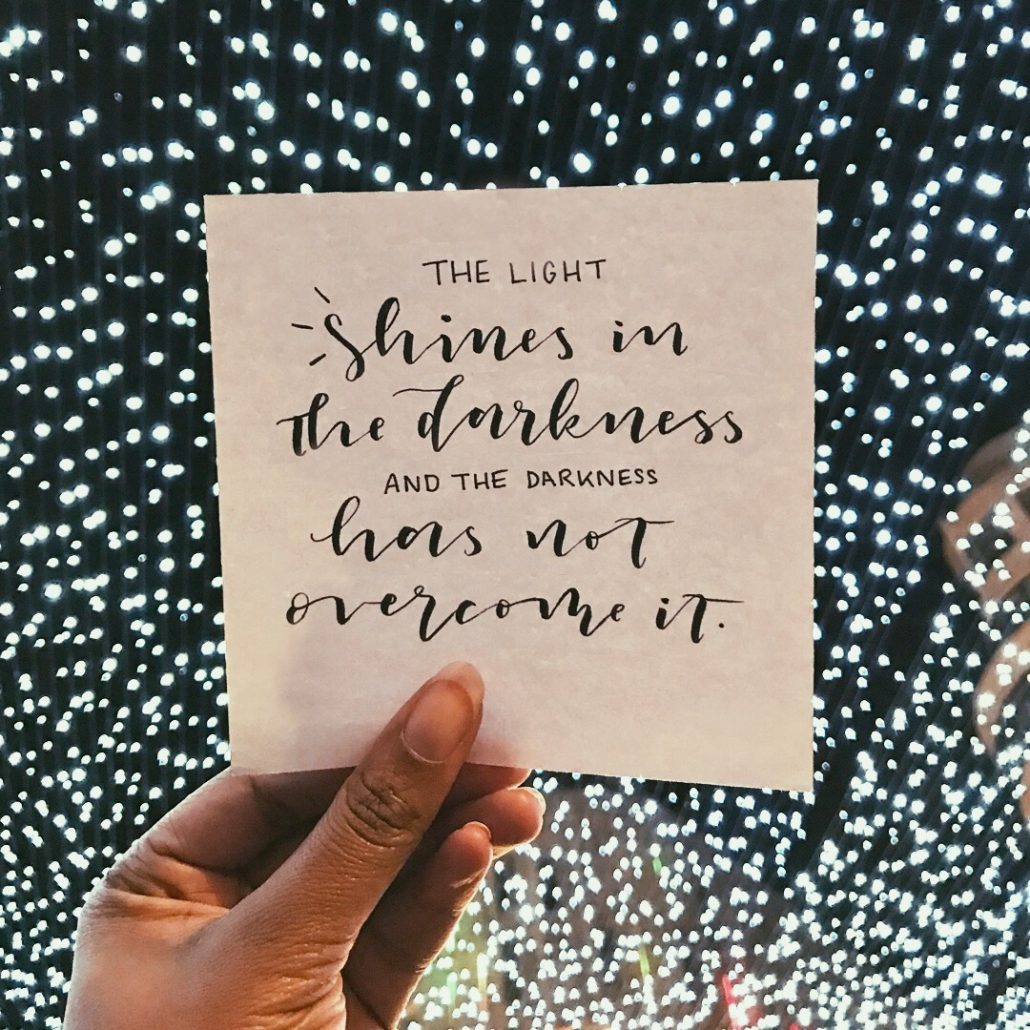 THE LIGHT
shines in
the darkness
AND THE DARKNESS
has not
overcome it.